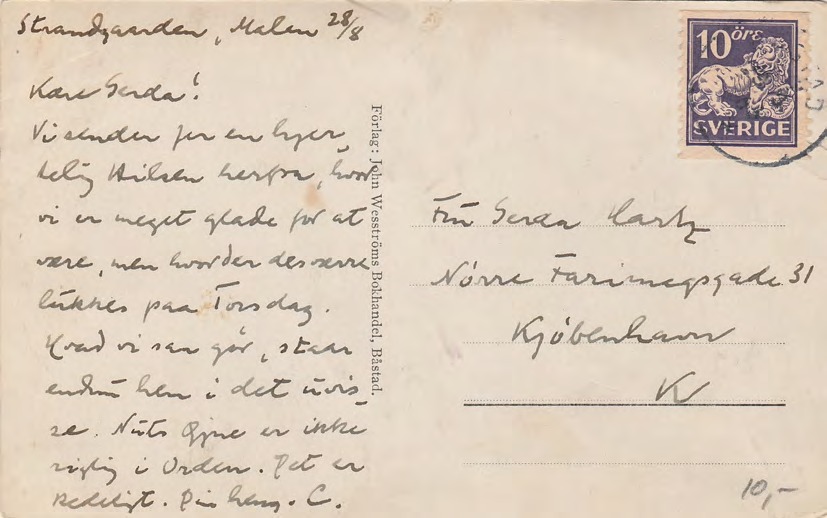 Strandgaarden, Malen 28/8
Kære Gerda!
Vi sender jer en hjer-
telig Hilsen herfra, hvor
vi er meget glade for at
være, men hvor der desværre
lukkes paa Torsdag.
Hvad vi saa gør, staar
endnu hen i det uvis-
se. Nuts Øjne er ikke
rigtig i Orden. Det er
kedeligt. Din heng. C.
Förlag: John Wesströms Bokhandel, Båstad.
10 öre
SVERIGE
Fru Gerda Hartz
Nörre Farimagsgade 31
Kjöbenhavn
K
10,-